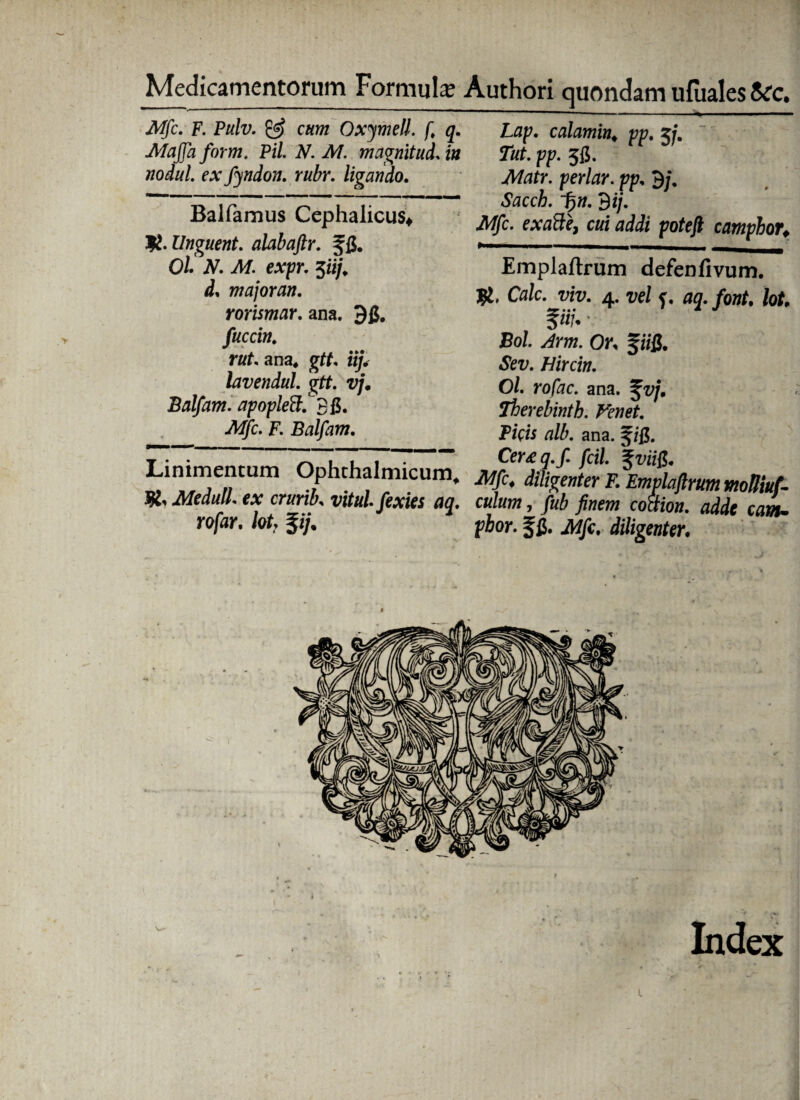 Medicamentorum Formulæ Authori quondam uſuales &c.
Mſc. F. Pulv. & cum Oxymell. ſ. q.
Maſſa form. Pil. N. M. magnitud. in
nodul. ex ſyndon. rubr. ligando.
Balſamus Cephalicus.
℞. Unguent. alabaſtr. ℥ß.
Ol. N. M. expr. ʒiij.
d. majoran.
rorismar. ana. ℈ß.
ſuccin.
rut. ana. gtt. iij.
lavendul. gtt. vj.
Balſam. apoplect. ℈ß.
Mſc. F. Balſam.
Linimentum Ophthalmicum.
℞. Medull. ex crurib. vitul. ſexies aq.
roſar. lot. ℥ij.
Lap. calamin. pp. ʒj.
Tut. pp. ʒß.
Matr. perlar. pp. ℈j.
Sacch. ♄n. ℈ij.
Mſc. exacte, cui addi poteſt camphor.
Emplaſtrum defenſivum.
℞. Calc. viv. 4. vel 5. aq. font. lot.
℥iij.
Bol. Arm. Or. ℥iiß.
Sev. Hircin.
Ol. roſac. ana. ℥vj.
Therebinth. Venet.
Picis alb. ana. ℥iß.
Ceræ q. ſ. ſcil. ℥viiß.
Mſc. diligenter F. Emplaſtrum molliuſ-
culum, ſub finem coction. adde cam-
phor. ℥ß. Mſc. diligenter.
Index